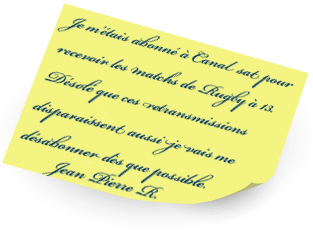 Je m'étais abonné à Canal sat pour
recevoir les matchs de Rugby à 13.
Désolé que ces retransmissions
disparaissent aussi je vais me
désabonner dès que possible.
Jean Pierre R.